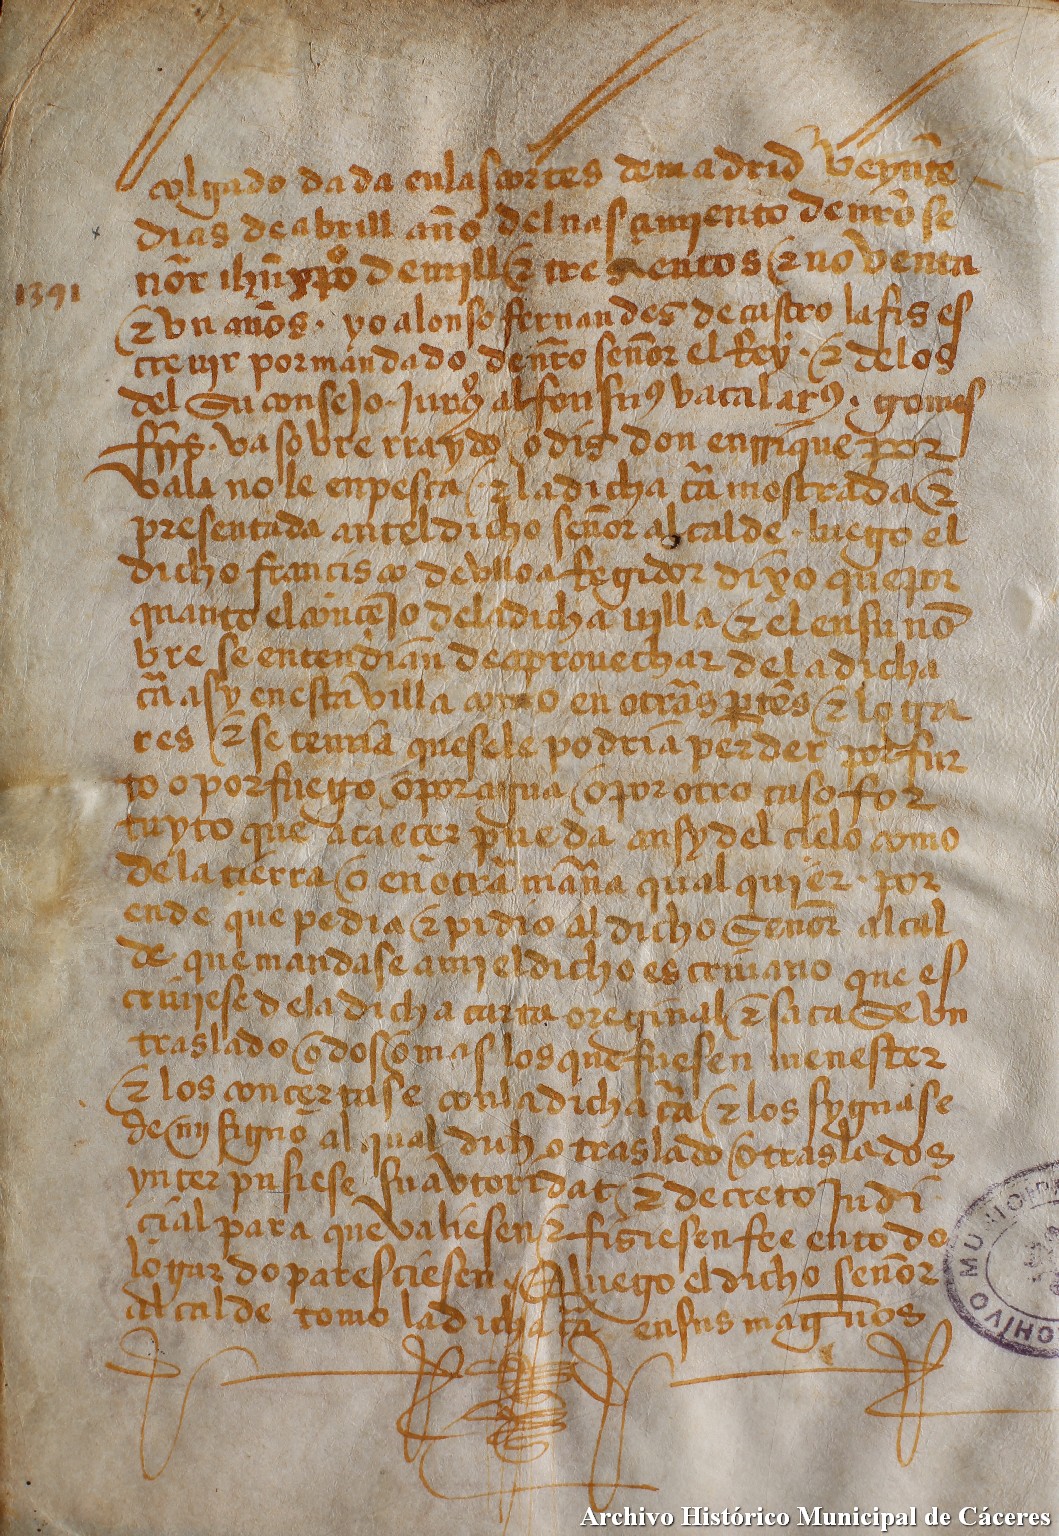 colgado dada en las cortes de madrid veynte
dias de abrill año del nasçimiento de nro se
ñor ihu xpo de mill & tresientos & noventa
1391
& un años . yo alonso fernandes de castro la fis es
crevir por mandado de nro señor el Rey . & de los
del su consejo . Jurs alfonsus bacalars . gomes
frrs . va sobre rraydo o dis don enrrique por
vala no le enpesca . & la dicha cra mostrada &
presentada antel dicho señor alcalde . luego el
dicho francisco de ulloa Regidor dixo que por
quanto el conçejo de la dicha villa & el en su no
bre se entendian de aprovechar de la dicha
cra asy en esta villa como en otras ptes & loga
res & se temia que se le podria perder por fur
to o por fuego o por agua o por otro caso for
tuyto que acaecer pueda ansy del cielo como
de la tierra o en otra mana qual quier . por
ende que pedia & pidio al dicho Señor alcal
de que mandase a mi el dicho escrivano que es
criviese de la dicha carta oreginal & sacase un
traslado o dos o mas los que fuesen menester
& los conçertase con la dicha cra & los sygnase
de mj signo al qual dicho traslado o traslados
ynterpusiese su avtoridat & decreto Judi
cial para que valiesen & fisiesen fee en to do
logar do paresciesen . E luego el dicho señor
alcalde tomo la dicha cra en sus manos
ARCHIVO MUNICIPAL
Archivo Histórico Municipal de Cáceres